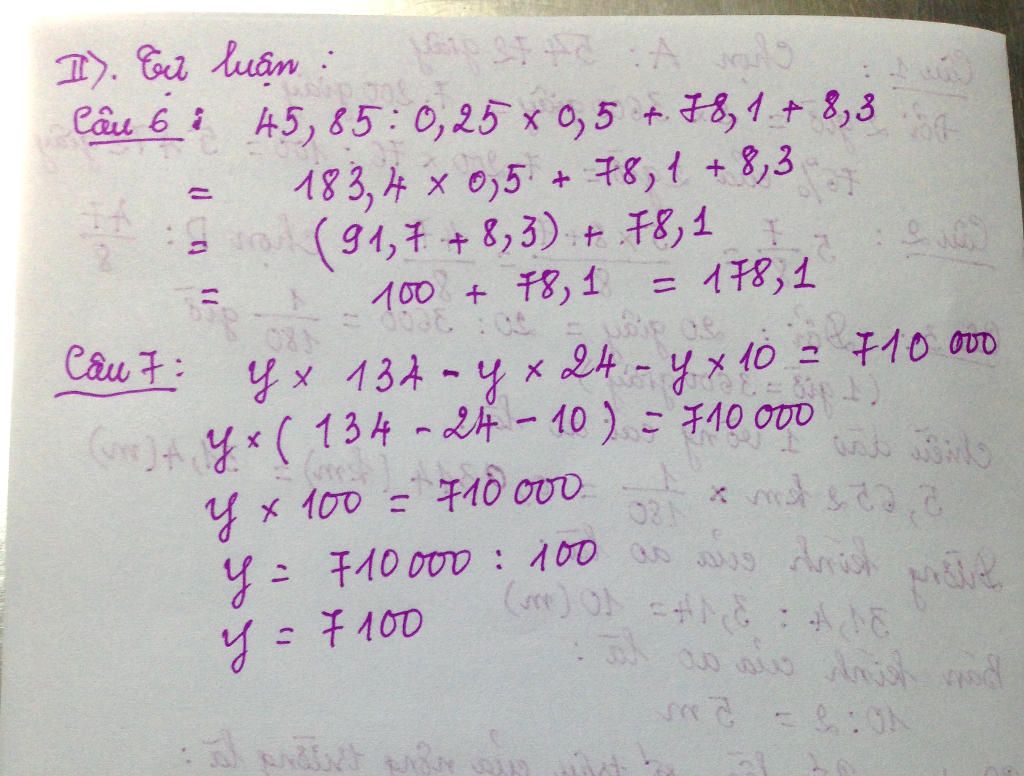 II). Tự luận :
Câu 6 : 45,85 : 0,25 × 0,5 + 78,1 + 8,3
= 183,4 × 0,5 + 78,1 + 8,3
= (91,7 + 8,3) + 78,1
= 100 + 78,1 = 178,1
Câu 7 : y × 134 - y × 24 - y × 10 = 710 000
y × ( 134 - 24 - 10 ) = 710 000
y × 100 = 710 000
y = 710 000 : 100
y = 7 100